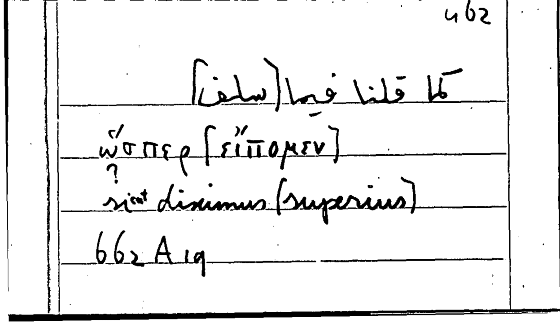 462
كما قلنا فيما (سلف]
ὥσπερ [εἴπομεν]
?
sicut diximus (superius)
662 A 19